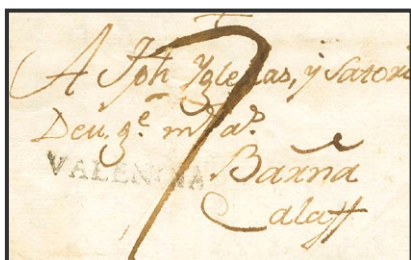 A Jph Yglesias, y Satorr
Deu. g.e m.s a.s
VALENCIA
Barna
Calaff
7